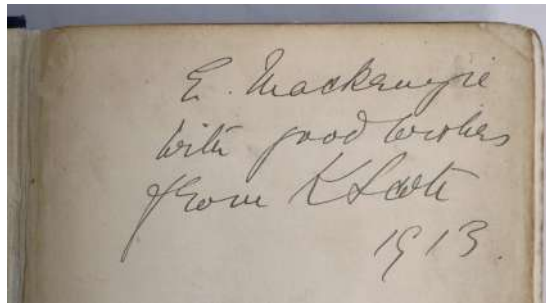 E. Mackenzie
with good wishes
from K Scott
1913.